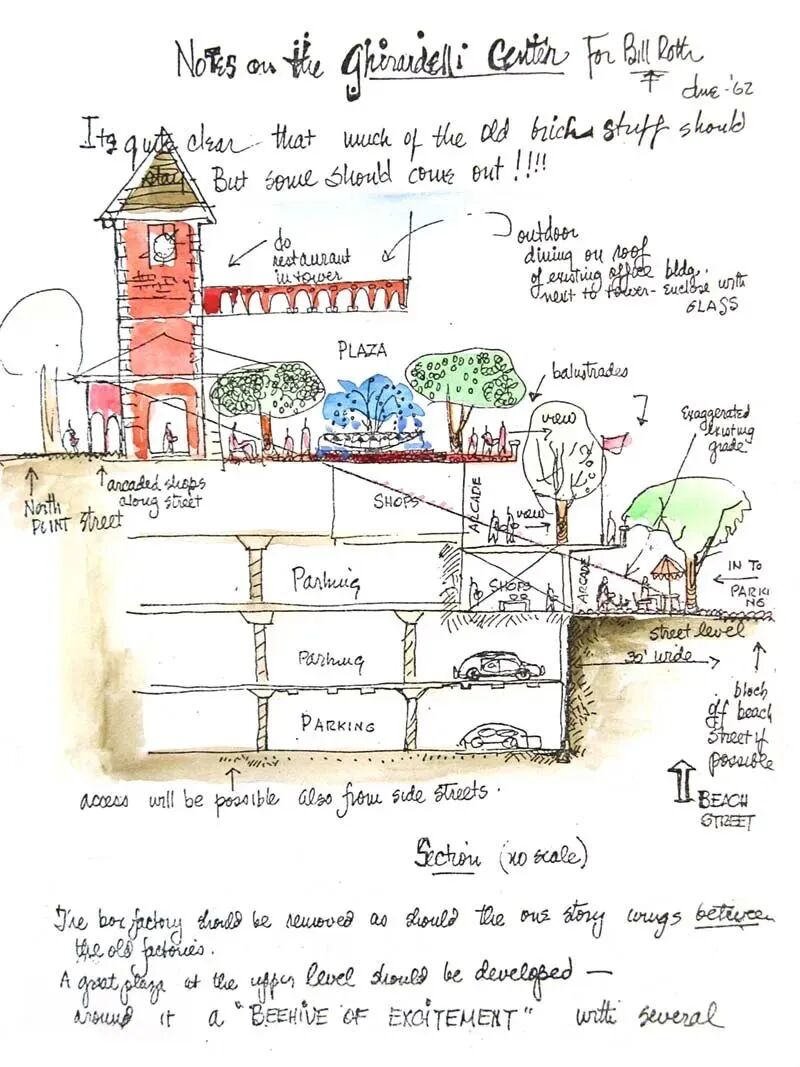 Notes on the Ghirardelli Center For Bill Roth
June - '62
Its quite clear that much of the old brick stuff should
stay - But some should come out!!!!
do
restaurant
in tower
outdoor
dining on roof
of existing office bldg.
next to tower - enclose with
GLASS
PLAZA
balustrades
view
Exaggerated
existing
grade
North
POINT street
arcaded shops
along street
SHOPS
ARCADE
view
Parking
SHOPS
ARCADE
IN TO
PARKI
NG
street level
30' wide
Parking
PARKING
block
off beach
street if
possible
BEACH
STREET
access will be possible also from side streets.
Section (no scale)
The box factory should be removed as should the one story wings between
the old factories.
A great plaza at the upper level should be developed —
around it a "BEEHIVE OF EXCITEMENT" with several